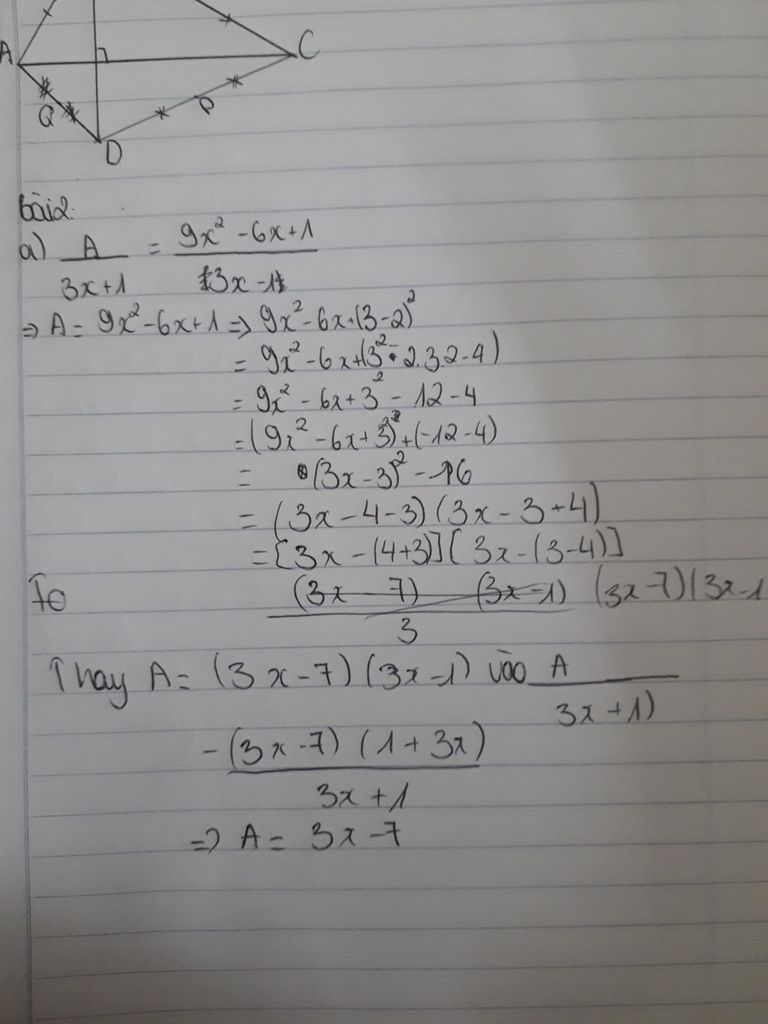 A C
Q P
D
bài 2.
a) A/(3x+1) = (9x² -6x+1)/(3x -1)
=> A = 9x² -6x+1 => 9x² -6x+(3-2)²
= 9x² -6x+(3² - 2.3.2-4)
= 9x² - 6x+3² - 12 - 4
= (9x² -6x+3)² + (-12-4)
= (3x-3)² - 16
= (3x-4-3) (3x-3+4)
= [3x-(4+3)] [3x-(3-4)]
(3x 7) (3x-1) (3x-7)(3x-1
3
Thay A = (3x-7) (3x-1) vào A
3x+1)
-(3x-7) (1+3x)
3x+1
=> A = 3x-7